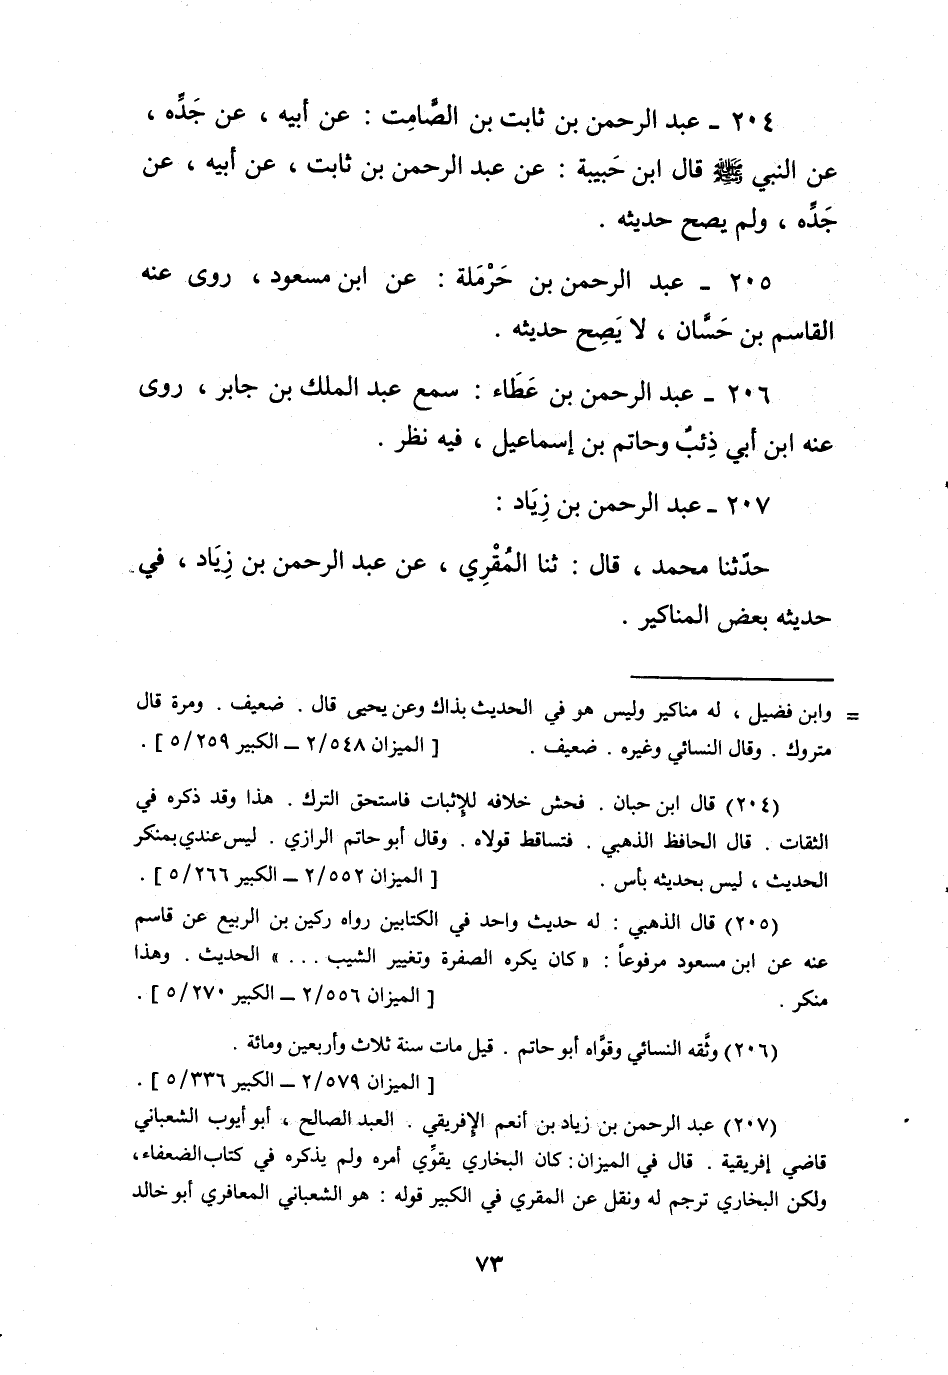 ٢٠٤ ـ عبد الرحمن بن ثابت بن الصَّامِت : عن أبيه ، عن جَدِّه ،
عن النبي ﷺ قال ابن حَبيبة : عن عبد الرحمن بن ثابت ، عن أبيه ، عن
جَدِّه ، ولم يصح حديثه .
٢٠٥ ـ عبد الرحمن بن حَرْمَلة : عن ابن مسعود ، روى عنه
القاسم بن حَسَّان ، لا يَصِح حديثه .
٢٠٦ ـ عبد الرحمن بن عَطَاء : سمع عبد الملك بن جابر ، روى
عنه ابن أبي ذِئبٌ وحاتم بن إسماعيل ، فيه نظر .
٢٠٧ ـ عبد الرحمن بن زِيَاد :
حدّثنا محمد ، قال : ثنا المُقْرِي ، عن عبد الرحمن بن زِيَاد ، في
حديثه بعض المناكير .
= وابن فضيل ، له مناكير وليس هو في الحديث بذاك وعن يحيى قال . ضعيف . ومرة قال
متروك . وقال النسائي وغيره . ضعيف . [ الميزان ٢/٥٤٨ ـ الكبير ٥/٢٥٩ ] .
(٢٠٤) قال ابن حبان . فحش خلافه للإثبات فاستحق الترك . هذا وقد ذكره في
الثقات . قال الحافظ الذهبي . فتساقط قولاه . وقال أبو حاتم الرازي . ليس عندي بمنكر
الحديث ، ليس بحديثه بأس . [ الميزان ٢/٥٥٢ ـ الكبير ٥/٢٦٦ ] .
(٢٠٥) قال الذهبي : له حديث واحد في الكتابين رواه ركين بن الربيع عن قاسم
عنه عن ابن مسعود مرفوعاً : « كان يكره الصفرة وتغيير الشيب ... » الحديث . وهذا
منكر . [ الميزان ٢/٥٥٦ ـ الكبير ٥/٢٧٠ ] .
(٢٠٦) وثَّقه النسائي وقوَّاه أبو حاتم . قيل مات سنة ثلاث وأربعين ومائة .
[ الميزان ٢/٥٧٩ ـ الكبير ٥/٣٣٦ ] .
(٢٠٧) عبد الرحمن بن زياد بن أنعم الإفريقي . العبد الصالح ، أبو أيوب الشعباني
قاضي إفريقية . قال في الميزان : كان البخاري يقوِّي أمره ولم يذكره في كتاب الضعفاء ،
ولكن البخاري ترجم له ونقل عن المقري في الكبير قوله : هو الشعباني المعافري أبو خالد
٧٣